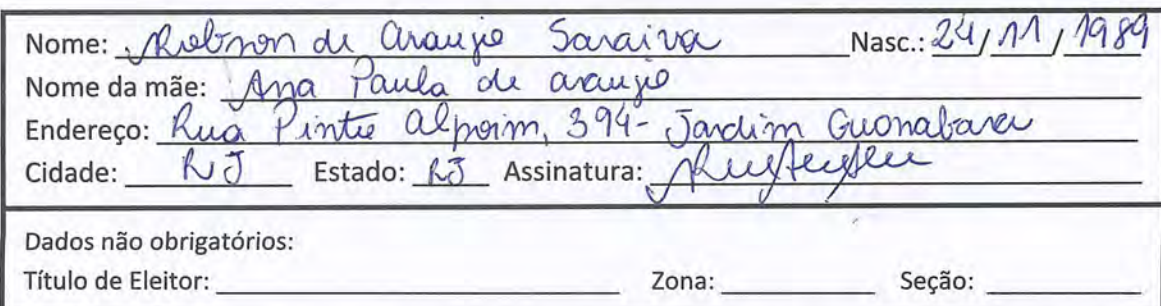 Nome: Robson de Araujo Saraiva Nasc.: 24/11/1989
Nome da mãe: Ana Paula de araujo
Endereço: Rua Pinto Alpoim, 394- Jardim Guanabara
Cidade: RJ Estado: RJ Assinatura:
Dados não obrigatórios:
Título de Eleitor: Zona: Seção: